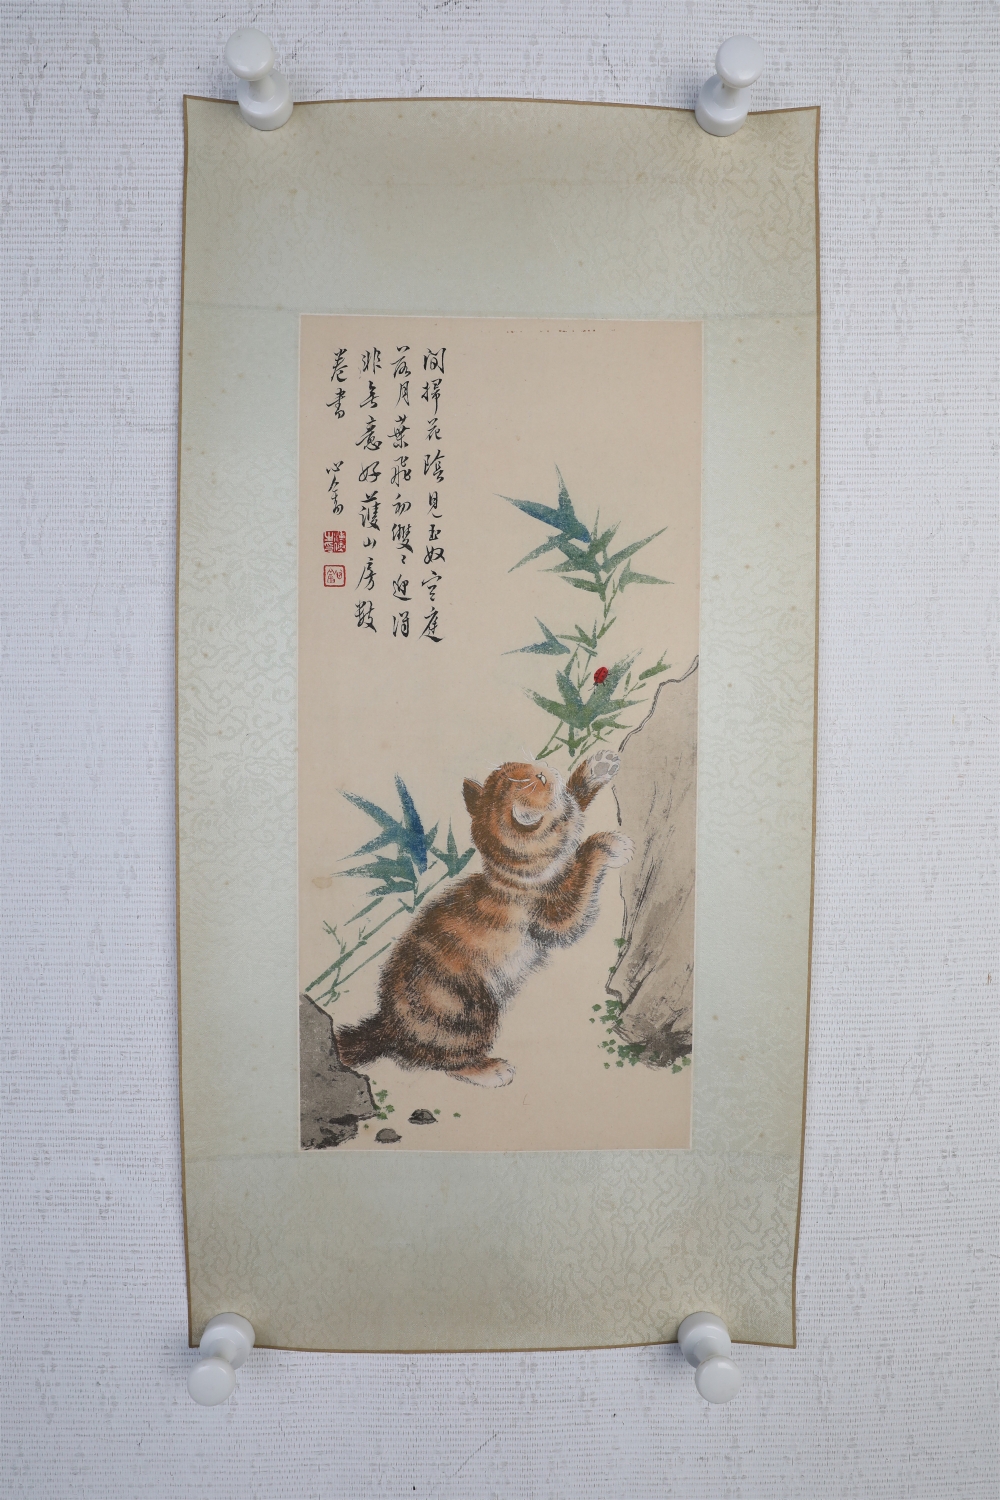 閒掃花陰見玉奴空庭
落月葉飛初雙〻迎得
非無意好護山房數
卷書
心畬